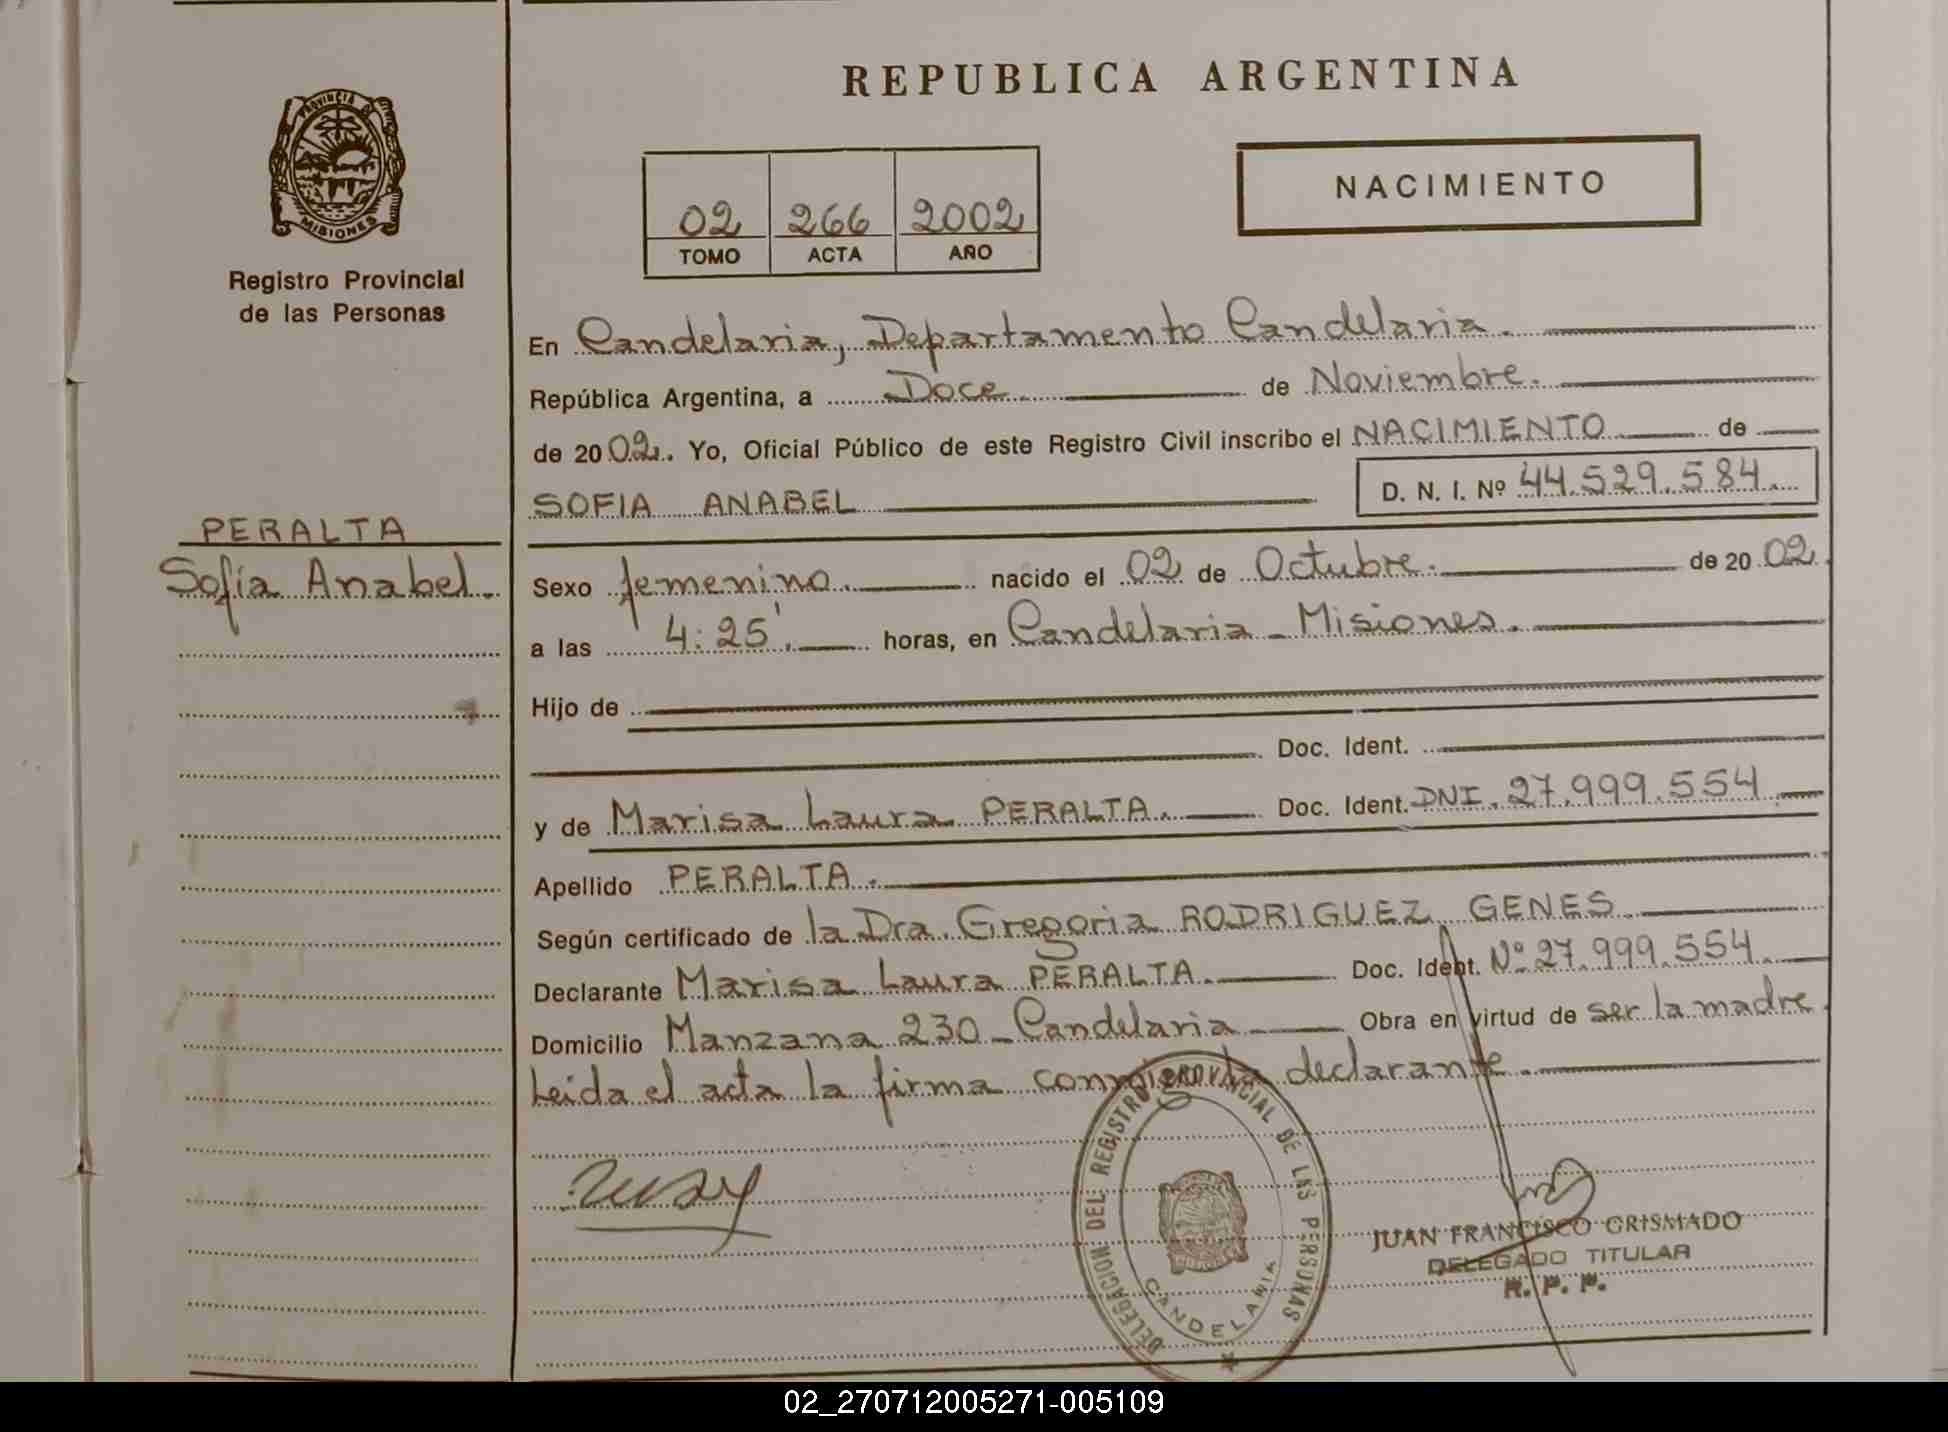 REPUBLICA ARGENTINA
PROVINCIA D
MISIONES
Registro Provincial
de las Personas
02 266 2002
TOMO ACTA AÑO
NACIMIENTO
En Candelaria, Departamento Candelaria.
República Argentina, a Doce de Noviembre.
de 2002. Yo, Oficial Público de este Registro Civil inscribo el NACIMIENTO de
SOFIA ANABEL
D. N. I. Nº 44.529.584.
PERALTA
Sofía Anabel.
Sexo femenino. nacido el 02 de Octubre. de 2002.
a las 4:25'. horas, en Candelaria - Misiones.
Hijo de
Doc. Ident.
y de Marisa Laura PERALTA. Doc. Ident. DNI. 27.999.554
Apellido PERALTA.
Según certificado de la Dra. Gregoria RODRIGUEZ GENES
Declarante Marisa Laura PERALTA. Doc. Ident. Nº 27.999.554.
Domicilio Manzana 230 - Candelaria Obra en virtud de ser la madre.
Leida el acta la firma conmigo la declarante.
DELEGACION DEL REGISTRO PROVINCIAL DE LAS PERSONAS
CANDELARIA
JUAN FRANCISCO GRISMADO
DELEGADO TITULAR
R. P. P.
02_270712005271-005109